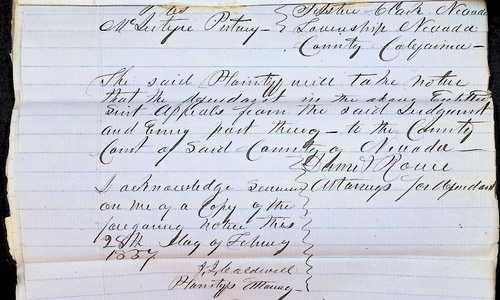 vs } Justice Clark Nevada
McIntyre Putney - } Township Nevada
County California -
The said Plaintiff will take notice
that the defendant in the above Entitled
Suit Appeals from the said Judgment
and Every part thereof - to the County
Court of Said County of Nevada -
Attorneys for Defendant
I acknowledge Service
on me of a Copy of the
foregoing notice this
28th day of February
1857
Caldwell
Plaintiffs Attorney -